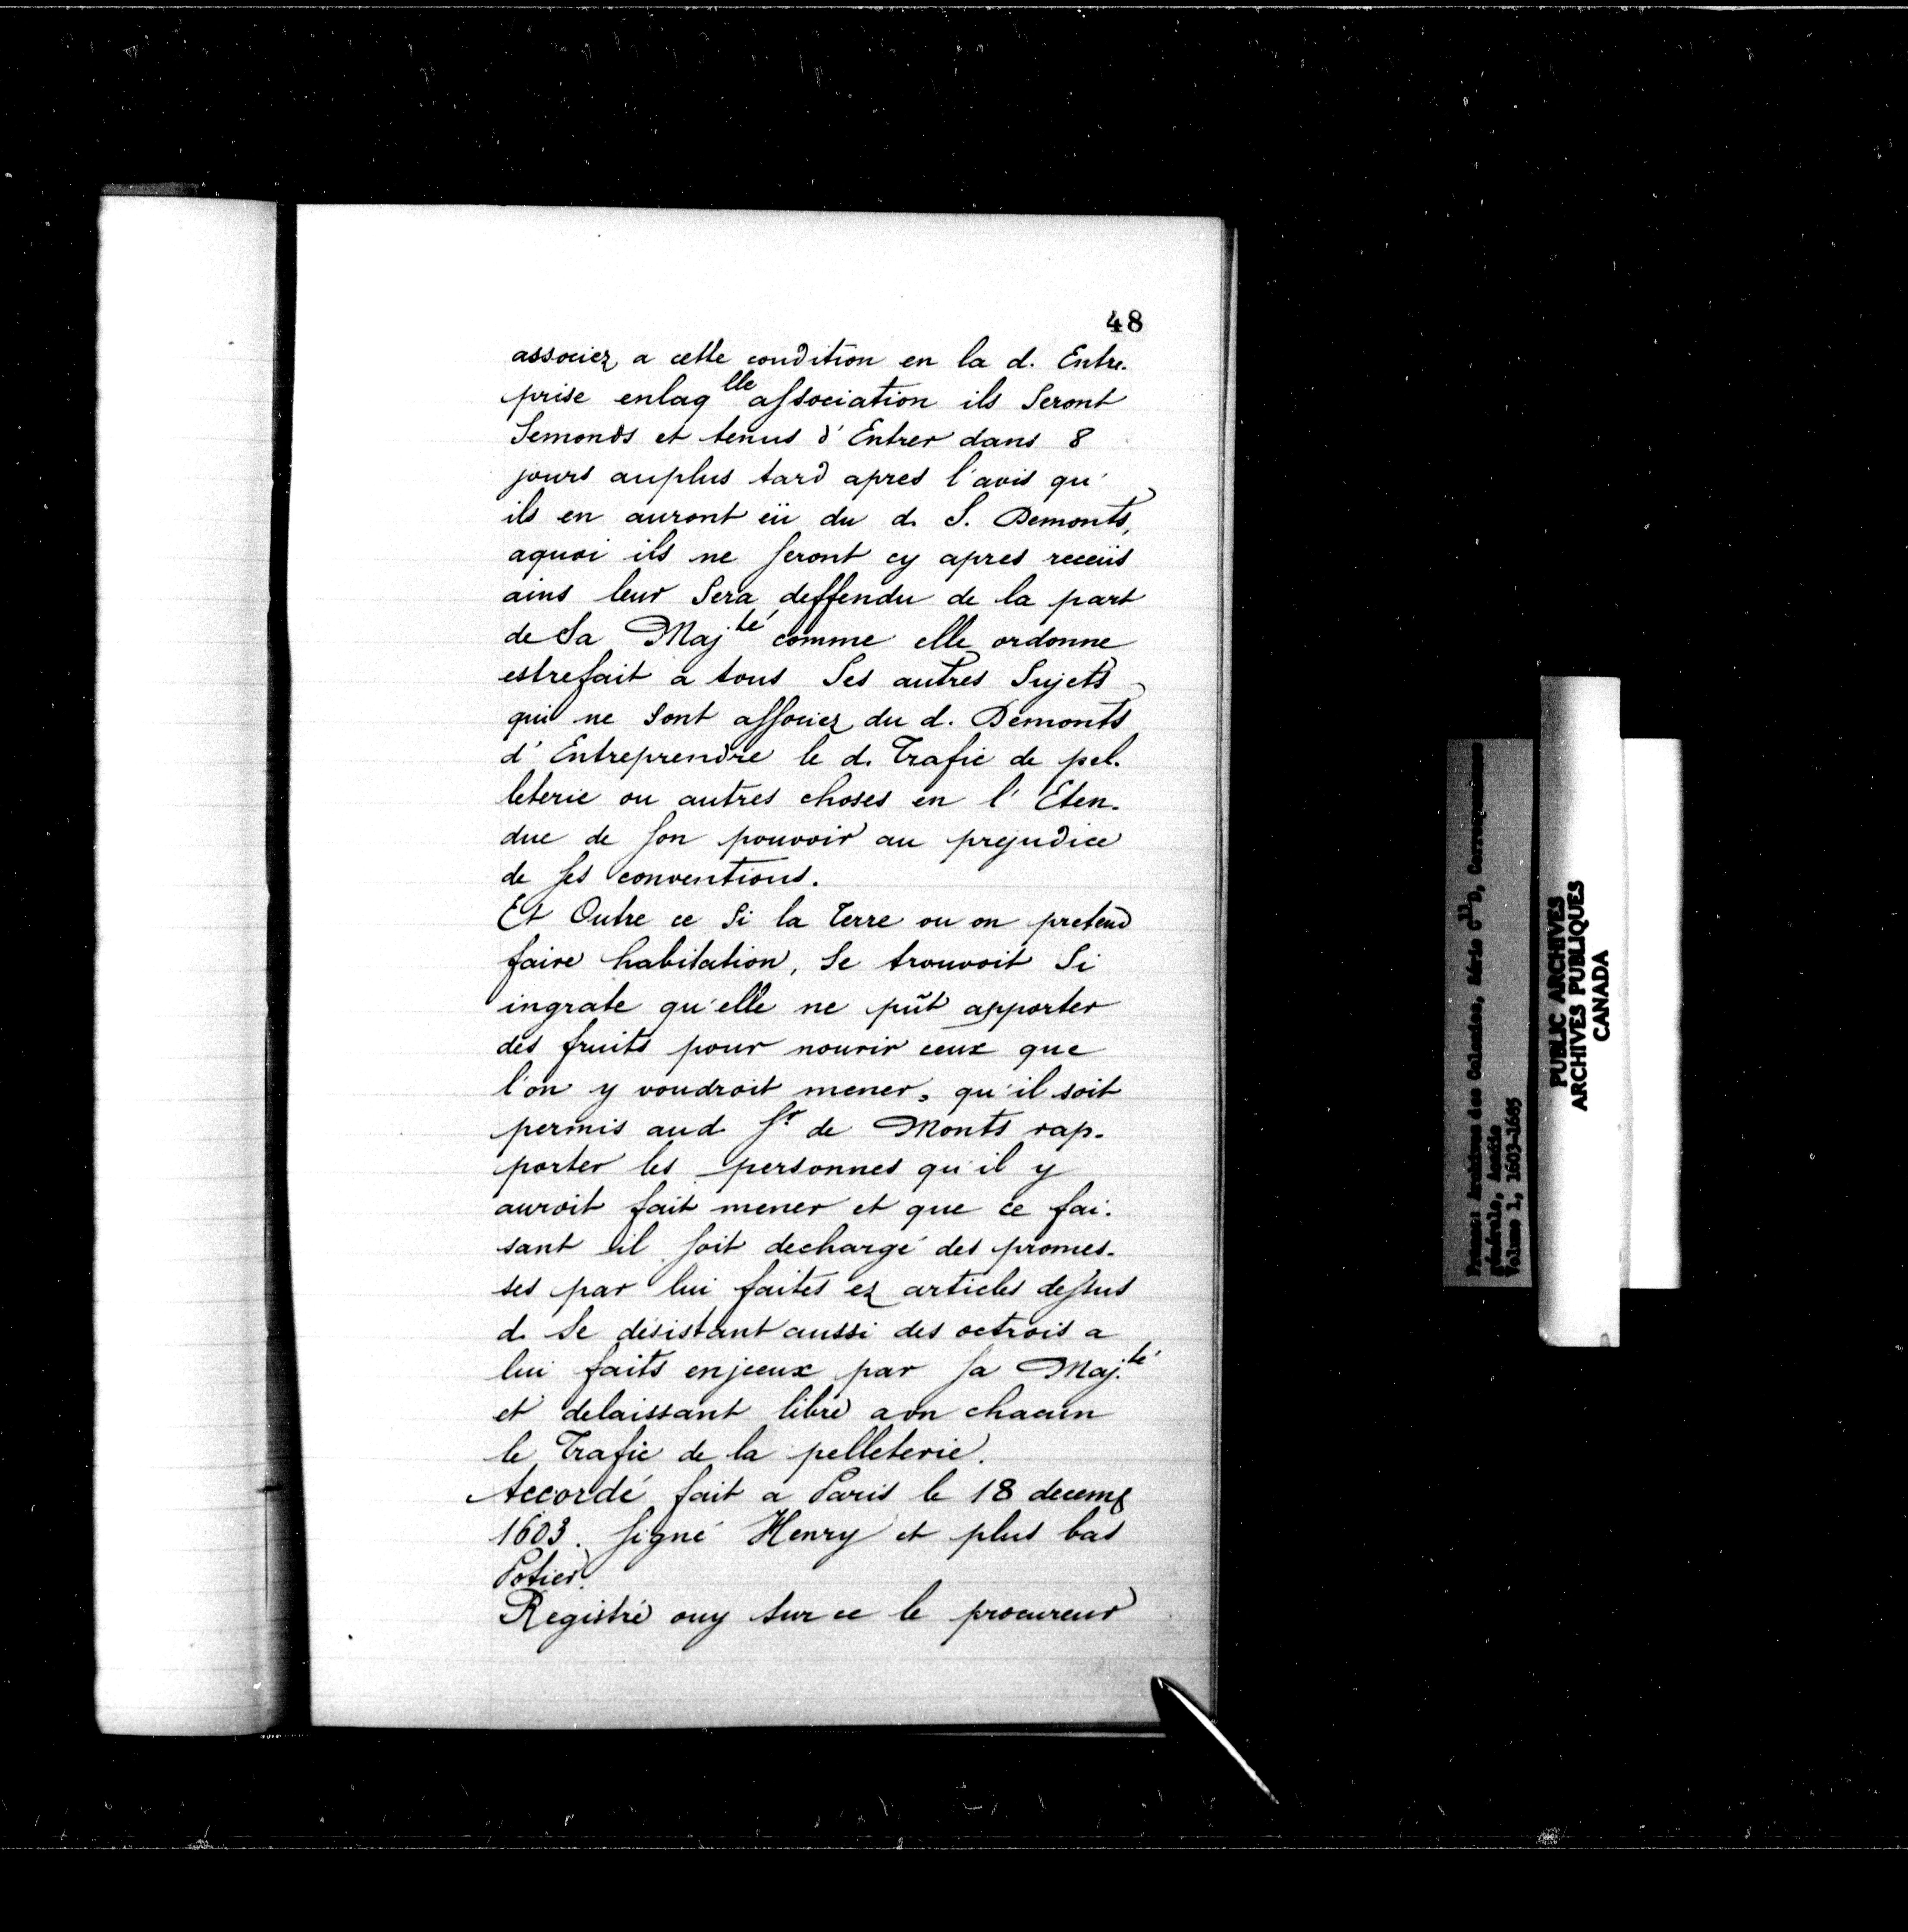 48
associez a cette condition en la d. Entre-
prise enlaqlle association ils Seront
Semonds et tenus d'Entrer dans 8
jours auplus tard apres l'avis qu'
ils en auront eü du d. S. Demonts,
aquoi ils ne seront cy apres receüs
ains leur Sera deffendu de la part
de Sa Majté comme elle ordonne
estrefait a tous Ses autres Sujets
qui ne sont associez du d. Demonts
d'Entreprendre le d. Trafic de pel-
leterie ou autres choses en l'Eten-
due de son pouvoir au prejudice
de ses conventions.
Et Outre ce Si la Terre ou on pretend
faire habitation, Se trouvoit Si
ingrate qu'elle ne pût apporter
des fruits pour nourir ceux que
l'on y voudroit mener, qu'il soit
permis aud Sr de Monts rap-
porter les personnes qu'il y
auroit fait mener et que ce fai-
sant il soit dechargé des promes-
ses par lui faites ez articles dessus
d. Se desistant aussi des octrois a
lui faits enjceux par sa Maj.té
et delaissant libre aun chacun
le Trafic de la pelleterie.
Accordé fait a Paris le 18 decemb
1603. signé Henry et plus bas
Potier.
Registré ouy sur ce le procureur
France: Archives des Colonies, Série C11D, Correspondance
générale, Acadie
Volume 1, 1603-1685
PUBLIC ARCHIVES
ARCHIVES PUBLIQUES
CANADA